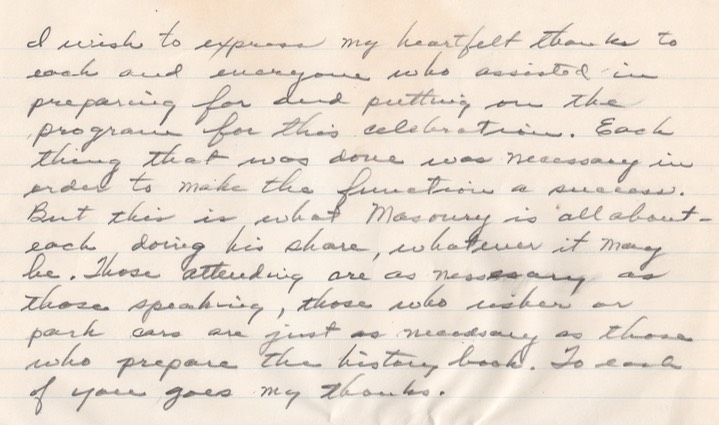 I wish to express my heartfelt thanks to
each and everyone who assisted in
preparing for and putting on the
program for this celebration. Each
thing that was done was necessary in
order to make the function a success.
But this is what Masonry is all about -
each doing his share, whatever it may
be. Those attending are as nessesary as
those speaking, those who usher or
park cars are just as necessary as those
who prepare the history book. To each
of you goes my thanks.